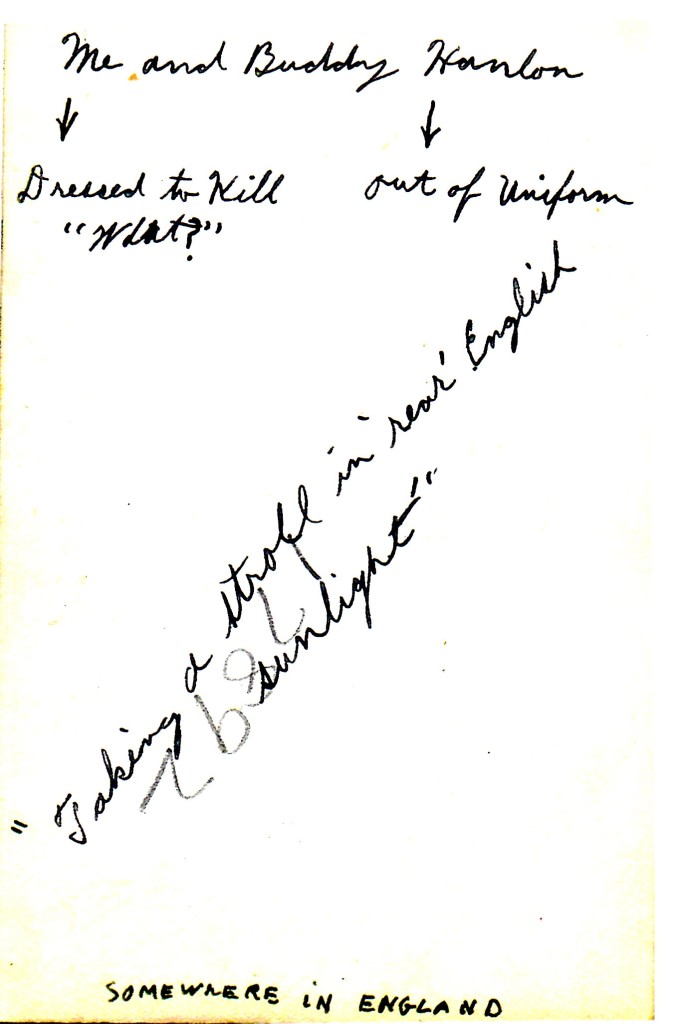 Me and Buddy Hanlon
↓ ↓
Dressed to Kill out of Uniform
"What?"
"Taking a stroll in 'rear' English
sunlight'"
SOMEWHERE IN ENGLAND